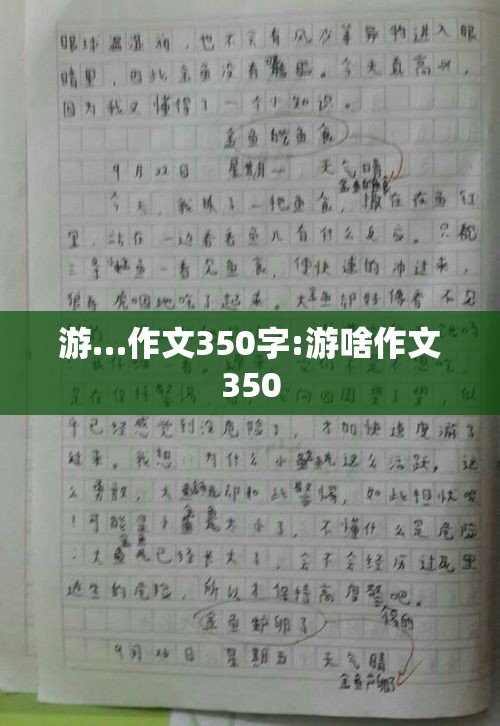 眼球温湿润，也不会有风沙等异物进入眼
睛里，因此金鱼没有眼脸。今天真高兴，
因为我又懂得了一个小知识。
金鱼 鱼食
9月22日 星期一 天气晴
金鱼
今天，我抓了一把鱼食，撒在在鱼缸
里，站在一边看看鱼儿有什么反应。只见
三条 鱼一看见鱼食，便快速的冲过来，
狼吞虎咽地吃了起来。大 鱼却好像看不见
游...作文350字:游啥作文
350
是在保持警惕， 向四周望了望，似
乎已经感觉到没危险了，才加快速度游了
过来。我想：为什么小鱼 这么活跃，这
么勇敢，大鱼 却如此警惕，如此担忧呢
！可能是小鱼 太小了，不懂什么是危险
；大鱼 已经长大了，会不会经历过死里
逃生的危险，所以才保持高度警 吧。
惕的
金鱼 卵了
9月26日 星期五 天气晴
金鱼产卵了